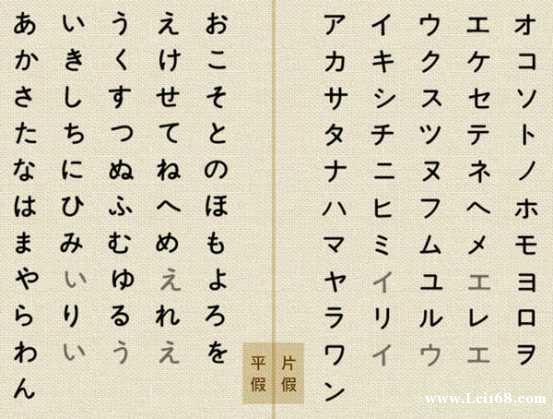 あ い う え お
か き く け こ
さ し す せ そ
た ち つ て と
な に ぬ ね の
は ひ ふ へ ほ
ま み む め も
や い ゆ え よ
ら り る れ ろ
わ い う え を
ん
平假
ア イ ウ エ オ
カ キ ク ケ コ
サ シ ス セ ソ
タ チ ツ テ ト
ナ ニ ヌ ネ ノ
ハ ヒ フ ヘ ホ
マ ミ ム メ モ
ヤ イ ユ エ ヨ
ラ リ ル レ ロ
ワ イ ウ エ ヲ
ン
片假
www.Lei168.com